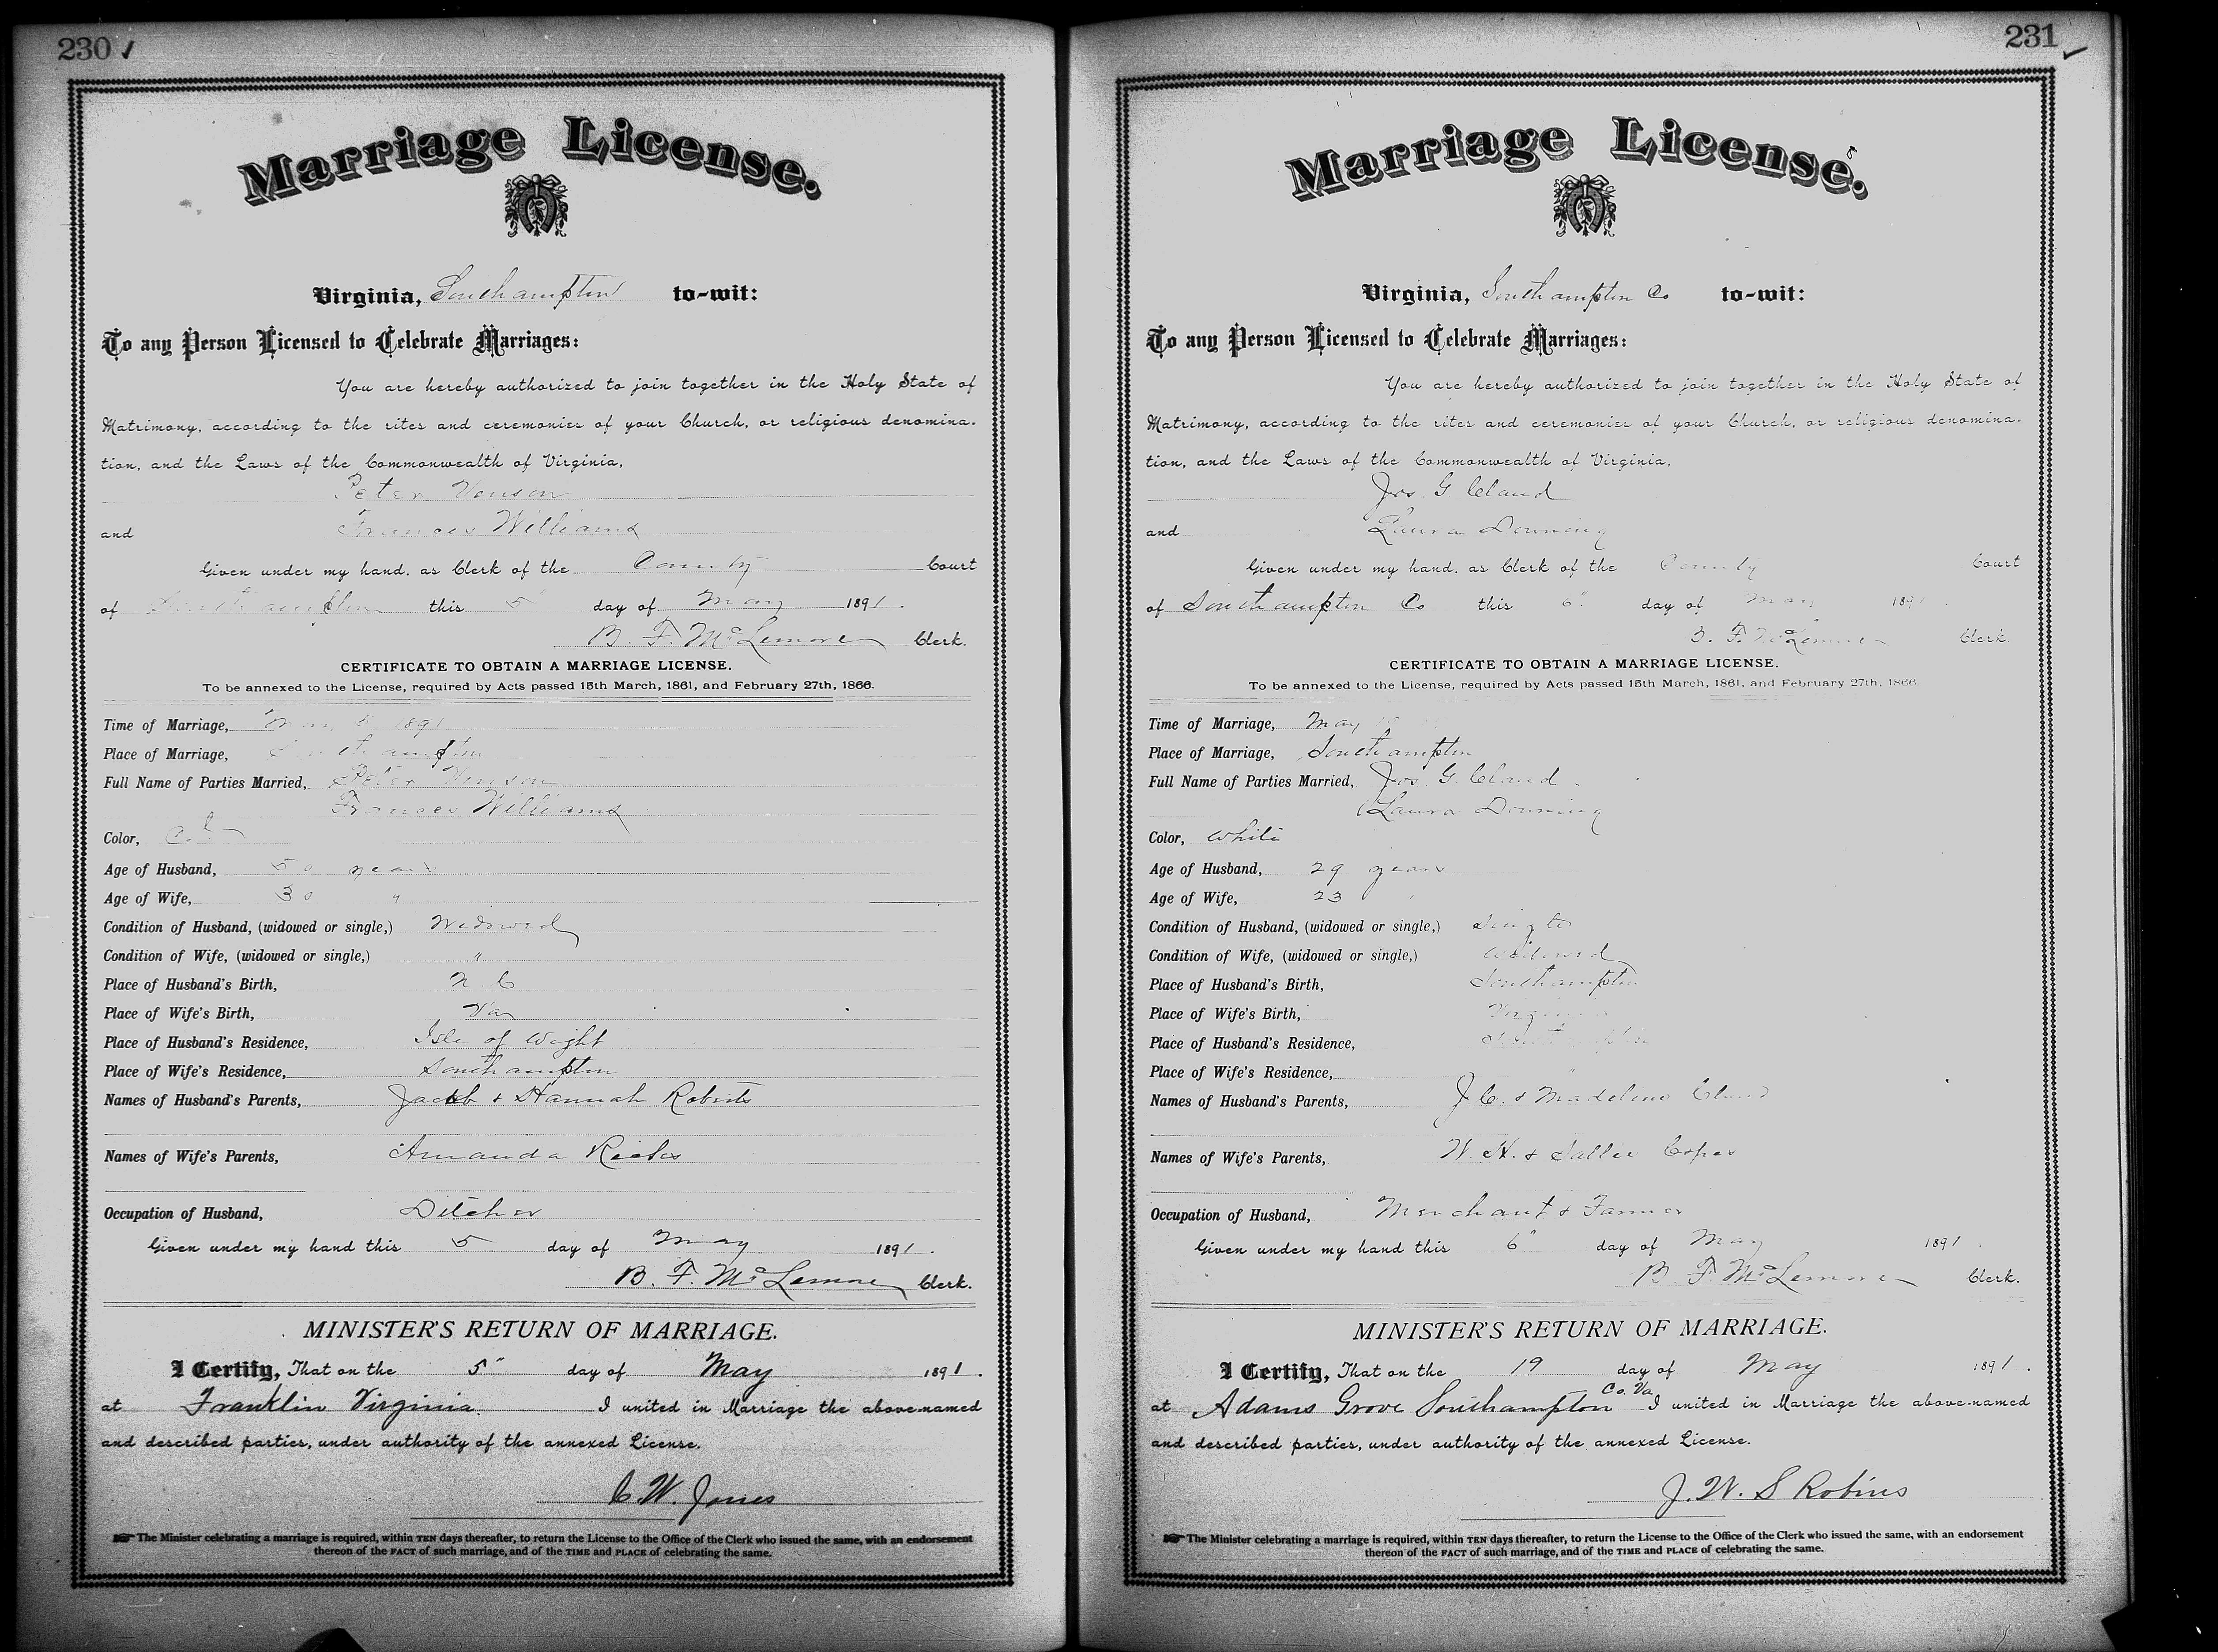 230
Marriage License.
Virginia, Southampton to-wit:
To any Person Licensed to Celebrate Marriages:
You are hereby authorized to join together in the Holy State of
Matrimony, according to the rites and ceremonies of your Church, or religious denomina-
tion, and the Laws of the Commonwealth of Virginia,
Peter Venson
and Frances Williams
Given under my hand, as Clerk of the County Court
of Southampton this 5" day of May 1891.
B. F. McLemore Clerk.
CERTIFICATE TO OBTAIN A MARRIAGE LICENSE.
To be annexed to the License, required by Acts passed 15th March, 1861, and February 27th, 1866.
Time of Marriage, May 5 1891
Place of Marriage, Southampton
Full Name of Parties Married, Peter Venson
Frances Williams
Color, Cold
Age of Husband, 50 years
Age of Wife, 30 "
Condition of Husband, (widowed or single,) Widowed
Condition of Wife, (widowed or single,) "
Place of Husband's Birth, N. C
Place of Wife's Birth, Va
Place of Husband's Residence, Isle of Wight
Place of Wife's Residence, Southampton
Names of Husband's Parents, Jacob & Hannah Roberts
Names of Wife's Parents, Amanda Ricks
Occupation of Husband, Ditcher
Given under my hand this 5 day of May 1891.
B. F. McLemore Clerk.
MINISTER'S RETURN OF MARRIAGE.
I Certify, That on the 5" day of May 1891.
at Franklin Virginia. I united in Marriage the above-named
and described parties, under authority of the annexed License.
C. W. Jones
The Minister celebrating a marriage is required, within TEN days thereafter, to return the License to the Office of the Clerk who issued the same, with an endorsement
thereon of the FACT of such marriage, and of the TIME and PLACE of celebrating the same.
231
Marriage License.
Virginia, Southampton Co to-wit:
To any Person Licensed to Celebrate Marriages:
You are hereby authorized to join together in the Holy State of
Matrimony, according to the rites and ceremonies of your Church, or religious denomina-
tion, and the Laws of the Commonwealth of Virginia,
Jos. G. Claud
and Laura Downing
Given under my hand, as Clerk of the County Court
of Southampton Co this 6" day of May 1891
B. F. McLemore Clerk.
CERTIFICATE TO OBTAIN A MARRIAGE LICENSE.
To be annexed to the License, required by Acts passed 15th March, 1861, and February 27th, 1866
Time of Marriage, May
Place of Marriage, Southampton
Full Name of Parties Married, Jos. G. Claud
Laura Downing
Color, White
Age of Husband, 29 years
Age of Wife, 23
Condition of Husband, (widowed or single,) Single
Condition of Wife, (widowed or single,) Widowed
Place of Husband's Birth, Southampton
Place of Wife's Birth, Virginia
Place of Husband's Residence, Southampton
Place of Wife's Residence,
Names of Husband's Parents, J. C. & Madeline Claud
Names of Wife's Parents, W. H. & Sallie Copes
Occupation of Husband, Merchant & Farmer
Given under my hand this 6" day of May 1891.
B. F. McLemore Clerk.
MINISTER'S RETURN OF MARRIAGE.
I Certify, That on the 19 day of May 1891.
at Adams Grove Southampton Co. Va I united in Marriage the above-named
and described parties, under authority of the annexed License.
J. W. S Robins
The Minister celebrating a marriage is required, within TEN days thereafter, to return the License to the Office of the Clerk who issued the same, with an endorsement
thereon of the FACT of such marriage, and of the TIME and PLACE of celebrating the same.